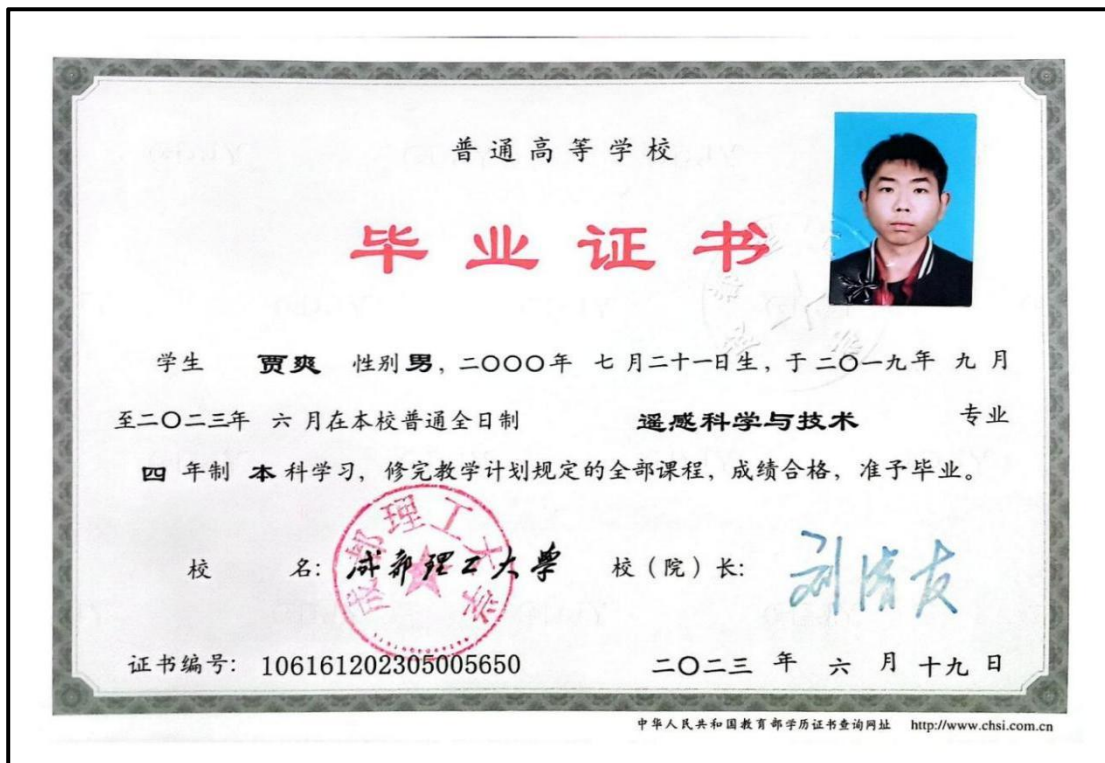 普通高等学校
毕业证书
学生 贾爽 性别 男，二〇〇〇年 七月二十一日生，于二〇一九年 九月
至二〇二三年 六月在本校普通全日制 遥感科学与技术 专业
四年制 本科学习，修完教学计划规定的全部课程，成绩合格，准予毕业。
成都理工大学
校 名：成都理工大学 校（院）长：刘清友
证书编号：106161202305005650 二〇二三 年 六 月 十九 日
中华人民共和国教育部学历证书查询网址 http://www.chsi.com.cn